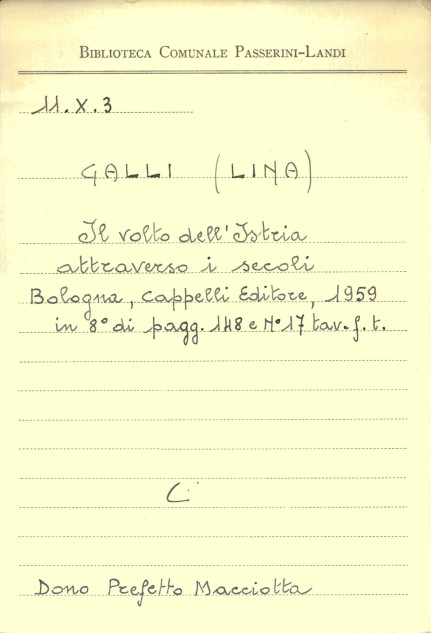 BIBLIOTECA COMUNALE PASSERINI-LANDI
11.X.3
GALLI (LINA)
Il volto dell'Istria
attraverso i secoli
Bologna, Cappelli Editore, 1959
in 8° di pagg. 148 e N° 17 tav. f. t.
C
Dono Prefetto Macciotta